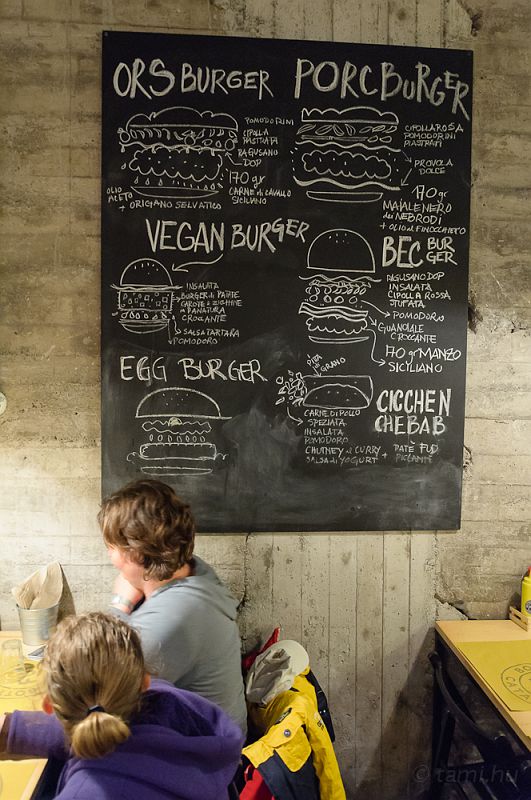 ORS BURGER
POMODORINI
CIPOLLA
PIASTRATA
RAGUSANO
DOP
170 gr
CARNE DI CAVALLO
SICILIANO
OLIO
ACETO
+ ORIGANO SELVATICO
PORCBURGER
CIPOLLA ROSA
POMODORINI
PIASTRATI
PROVOLA
DOLCE
170 gr
MAIALE NERO
DEI NEBRODI
+ OLIO AL FINOCCHIETO
VEGAN BURGER
INSALATA
BURGER DI PATATE
CAROTE E ZICHINE
IN PANATURA
CROCCANTE
SALSA TARTARA
POMODORO
BEC BURGER
RAGUSANO DOP
INSALATA
CIPOLLA ROSSA
STUFATA
POMODORO
GUANCIALE
CROCCANTE
170 gr MANZO
SICILIANO
EGG BURGER
PITA
DI
GRANO
CICCHEN
CHEBAB
CARNE DI POLLO
SPEZIATA
INSALATA
POMODORO
CHUTNEY AL CURRY +
SALSA DI YOGURT
PATÈ FUD
PICCANTE
© tami.hu